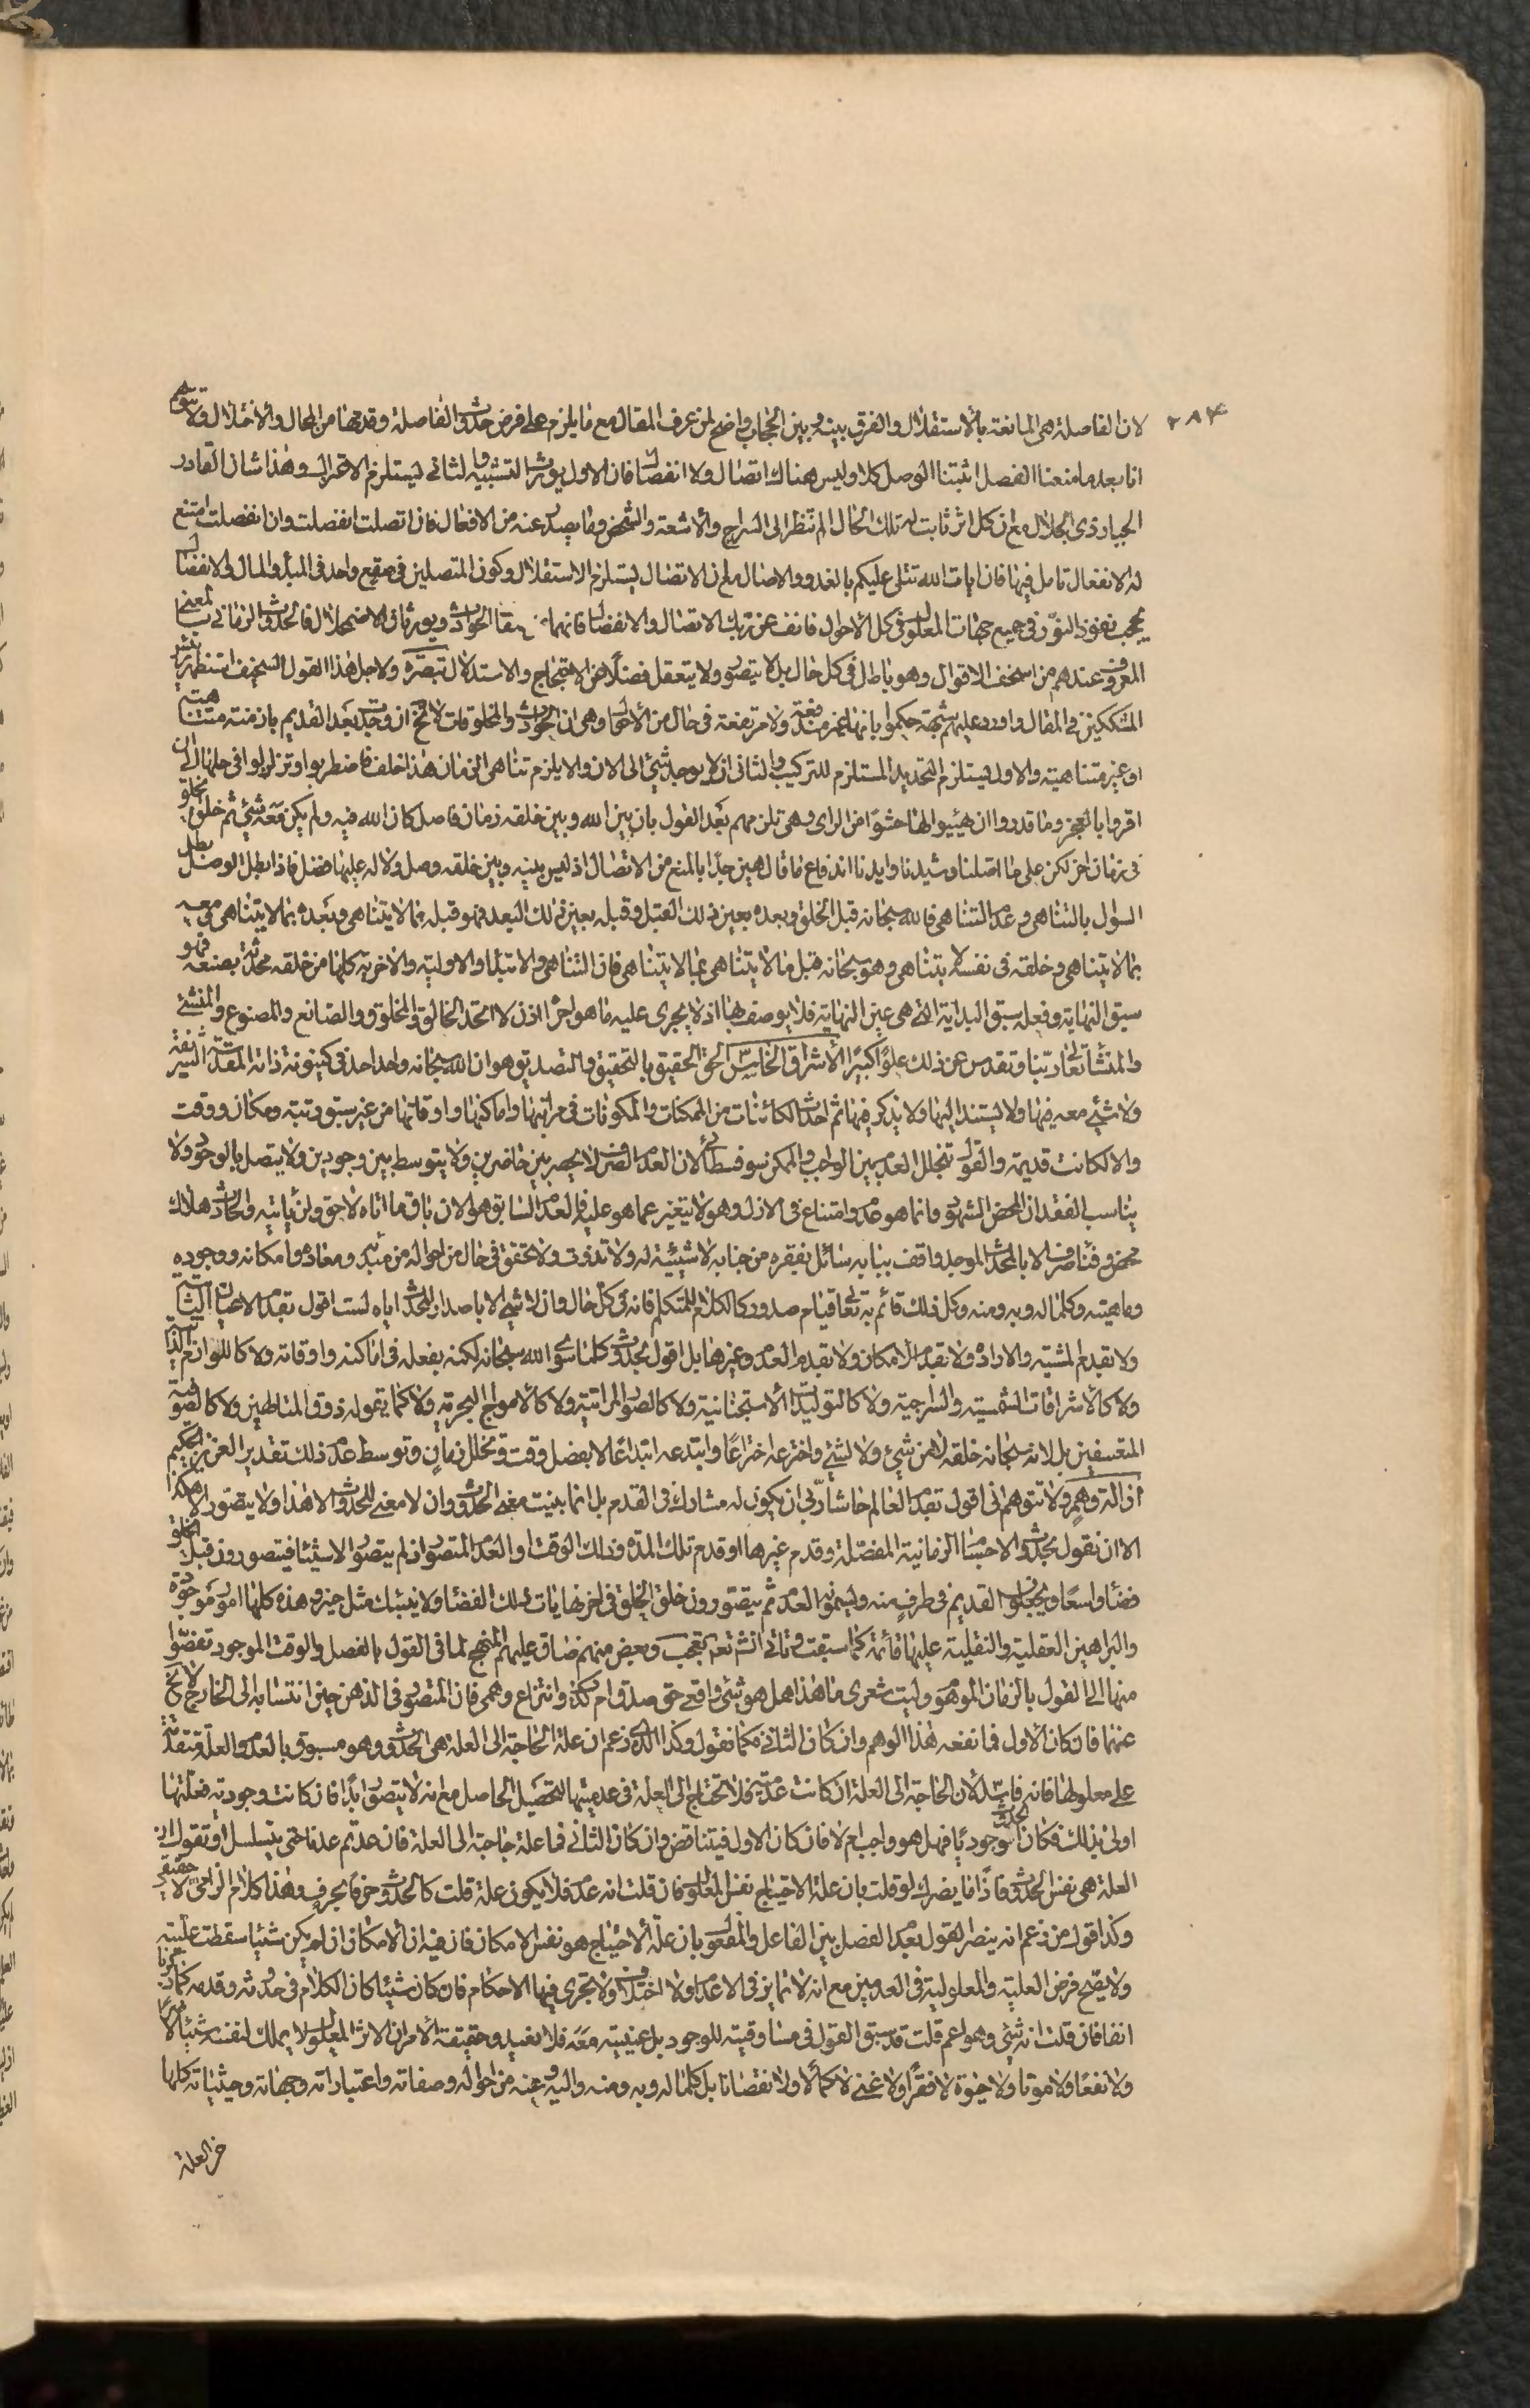 ٢٨٤
لان الفاصلة هي المانعة بالاستقلال والفرق بينه وبين الحجاب واضح لمن عرف المقال مع ما يلزم على فرض حدوث الفاصلة وقدمها من المحال والاختلال ولا تتوهم
انا بعد ما منعنا الفصل اثبتنا الوصل كلا وليس هناك اتصال ولا انفصال فان الاول يورث التشبيه والثاني ليستلزم الاعتزال وهذا شان القادر
الجبار ذي الجلال مع ان كل اثر ثابت له تلك الحال الم تنظر الى السراج والاشعة والشخص وما يصدر عنه من الافعال فان اتصلت انفصلت وان انفصلت امتنع
له الانفعال تامل فيها فان ايات الله تتلى عليكم بالغدو والاصال مع ان الاتصال يستلزم الاستقلال وكون المتصلين في صقع واحد في المبدأ والمال والانفصال
يحجب نفوذ النور في جميع جهات المعلول في كل الاحوال فانف عن ربك الاتصال والانفصال فانهما من صفات الحوادث ويورثان الاضمحلال فالحدوث الزماني بالمعنى
المعروف عندهم من اسخف الاقوال وهو باطل في كل حال بل لا يتصور ولا يتعقل فضلا عن الاحتجاج والاستدلال تبصرة ولاجل هذا القول السخيف استظهر بعض
المشككين في المقال واورد عليهم شبهة حكموا بانها غير مندفعة ولا مرتفعة في حال من الاحوال وهي ان الحوادث والمخلوقات لا تخ ان وجد بعد القديم بازمنة متناهية
او غير متناهية والاول يستلزم التحديد المستلزم للتركيب والثاني ان لا يوجد شيء الى الان والا يلزم تناهي الزمان هذا خلف فاضطربوا وتزلزلوا في حلها الى ان
اقروا بالعجز وما قدروا ان هيئوا لها حشوا من الراى وهي تلزمهم بعد القول بان بين الله وبين خلقه زمان فاصل كان الله فيه ولم يكن معه شيء ثم خلق الخلق
في زمان اخر لكن على ما اصلنا وشيدنا وايدنا اندفاع ما قال هين جدا بالمنع من الاتصال اذ ليس بينه وبين خلقه وصل ولا له عليها فصل فاذا بطل الوصل بطل
السؤل بالتناهي وعدم التناهي فالله سبحانه قبل الخلق وبعده بعين ذلك القبل وقبله بعين ذلك البعد فهو قبله بما لا يتناهي وبعده بما لا يتناهي ومعه
بما لا يتناهي وخلقه في نفسه لا يتناهي وهو سبحانه قبل ما لا يتناهى بما لا يتناهي فان التناهي والابتداء والاولية والاخرية كلها من خلقه محدثة بصنعه فهو
سبق النهاية وفعله سبق البداية التي هي عين النهاية فلا يوصف بها اذ لا يجري عليه ما هو اجراه اذن لا اتحد الخالق والمخلوق والصانع والمصنوع والمنشئ
والمنشأ تعالى ربنا وتقدس عن ذلك علوا كبيرا الاشراق الخامس الحق الحقيق بالتحقيق والتصديق هو ان الله سبحانه واحد احد في كينونة ذاته المقدسة الشريفة
ولا شيء معه فيها ولا يستند اليها ولا يذكر فيها ثم احدث الكائنات من الممكنات والمكونات في مراتبها واماكنها واوقاتها من غير سبق رتبة ومكان ووقت
والا لكانت قديمة والقول بتخلل العدم بين الواجب والممكن سوفسطائي لان العدم الصرف لا يحصر بين حاضرين ولا يتوسط بين وجودين ولا يتصل بالوجود ولا
يناسب الفقدان المحض الشهود وانما هو عدم وامتناع في الازل وهو لا يتغير عما هو عليه فالعدم السابق هو الان باق ما اتاه لاحق ولن يأتيه والحادث هلاك
محض وفناء صرف الا بالمحدث الموجد واقف ببابه سائل بفقره من جنابه لا شيئية له ولا تذوت ولا تحقق في حال من احواله من مبدئه ومعاده وامكانه ووجوده
وماهيته وكلما له وبه ومنه وكل ذلك قائم به تعالى قيام صدور كالكلام للمتكلم فانه في كل حال وان لا شيء الا باصدار المحدث اياه لست اقول بقدم الاعيان الثابتة
ولا بقدم المشية والارادة ولا بقدم الامكان ولا بقدم العدم وغيرها بل اقول بحدوث كلما سوى الله سبحانه لكنه بفعله في اماكنه واوقاته ولا كاللوازم الذاتية
ولا كالاشراقات الشمسية والسراجية ولا كالتوليدات الاستجنانية ولا كالصور المراتية ولا كالامواج البحرية ولا كما يقوله ذوق المتاطين ولا كالصوفية
المتعسفين بل لانه سبحانه خلقه لا من شيء ولا لشيء واخترعه اختراعا وابتدعه ابتداعا لا بفصل وقت وتخلل زمان وتوسط عدم ذلك تقدير العزيز الحكيم
ازالة وهم ولا تتوهم اني اقول بقدم العالم حاشا ربي ان يكون له مشارك في القدم بل انما بينت معنى الحدوث وان لا معنى للحدوث الا هذا ولا يتصور الا هكذا
الا ان نقول بحدوث الاجسام الزمانية المفصلة وقدم غيرها او قدم تلك المدة وذلك الوقت او العدم المتصور اذ لم يتصور الا شيئا فيتصورون قبل الخلق
فضاء واسعا ويجعلون القديم في طرف منه ويسمونه العدم ثم يتصورون خلق الخلق في اخر نهايات ذلك الفضاء ولا ينبئك مثل خبير وهذه كلها امور موجودة
والبراهين العقلية والنقلية عليها قائمة كما سبقت وتاتي انشء تعالى تعجب وبعض منهم ضاق عليهم المنهج لما في القول بالفصل والوقت الموجود تفصوا
منها الى القول بالزمان الموهوم وليت شعرى ما هذا هل هو شيء واقعي حق صدق ام كذب وانتزاع وهمي فان المتصور في الذهن حين انتسابه الى الخارج لا تخ
عنهما فان كان الاول فما نفعه هذا الوهم وان كان الثاني فكما نقول وكذا الذي زعم ان علة الحاجة الى العلة هي الحدوث وهو مسبوق بالعدم والعلة متقدمة
على معلولها فانه فاسد لان الحاجة الى العلة ان كانت عدمية فلا تحتاج الى العلة في عدميتها لتحصيل الحاصل مع انه لا يتصور ابدا فان كانت وجودية فعلتها
اولى بذلك فكان الحدوث وجوديا فهل هو واجب ام لا فان كان الاول فيتناقض وان كان الثاني فما علة حاجة الى العلة فان عدتم عدنا حتى يتسلسل او تقول ان
العلة هي نفس الحدوث فاذا ما يضرك لو قلت بان علة الاحتياج نفس المعلول فان قلت انه عدم فلا يكون علة قلت كالحدوث حرفا بحرف وهذا كلام الزامي لا حقيقي
وكذا قول من زعم انه ينصر القول بعدم الفصل بين الفاعل والمفعول بان علة الاحتياج هو نفس الامكان فان فيه ان الامكان ان لم يكن شيئا سقطت عليته
ولا يصح فرض العلية والمعلولية في العدمين مع انه لا تمايز في الاعدام ولا اختلاف ولا تجرى فيها الاحكام فان كان شيئا كان الكلام في حدوثه وقدمه كما ذكرنا
انفا فان قلت انه شيء وهو اعم قلت قد سبق القول في مساوقيته للوجود بل عينيته معه فلا نعيد وحقيقة الامر ان الاثر المعلول لا يملك لنفسه شيئا لا ضرا
ولا نفعا ولا موتا ولا حيوة لا فقرا ولا غنى لا كمالا ولا نقصانا بل كلما له وبه ومنه واليه وعنه من احواله وصفاته واعتباراته وجهاته وحيثياته كلها
من العلة